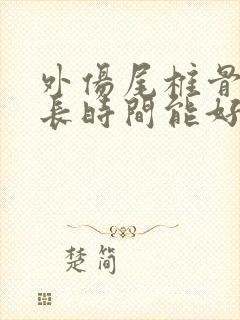 外傷尾椎骨
長時間能好
楚简